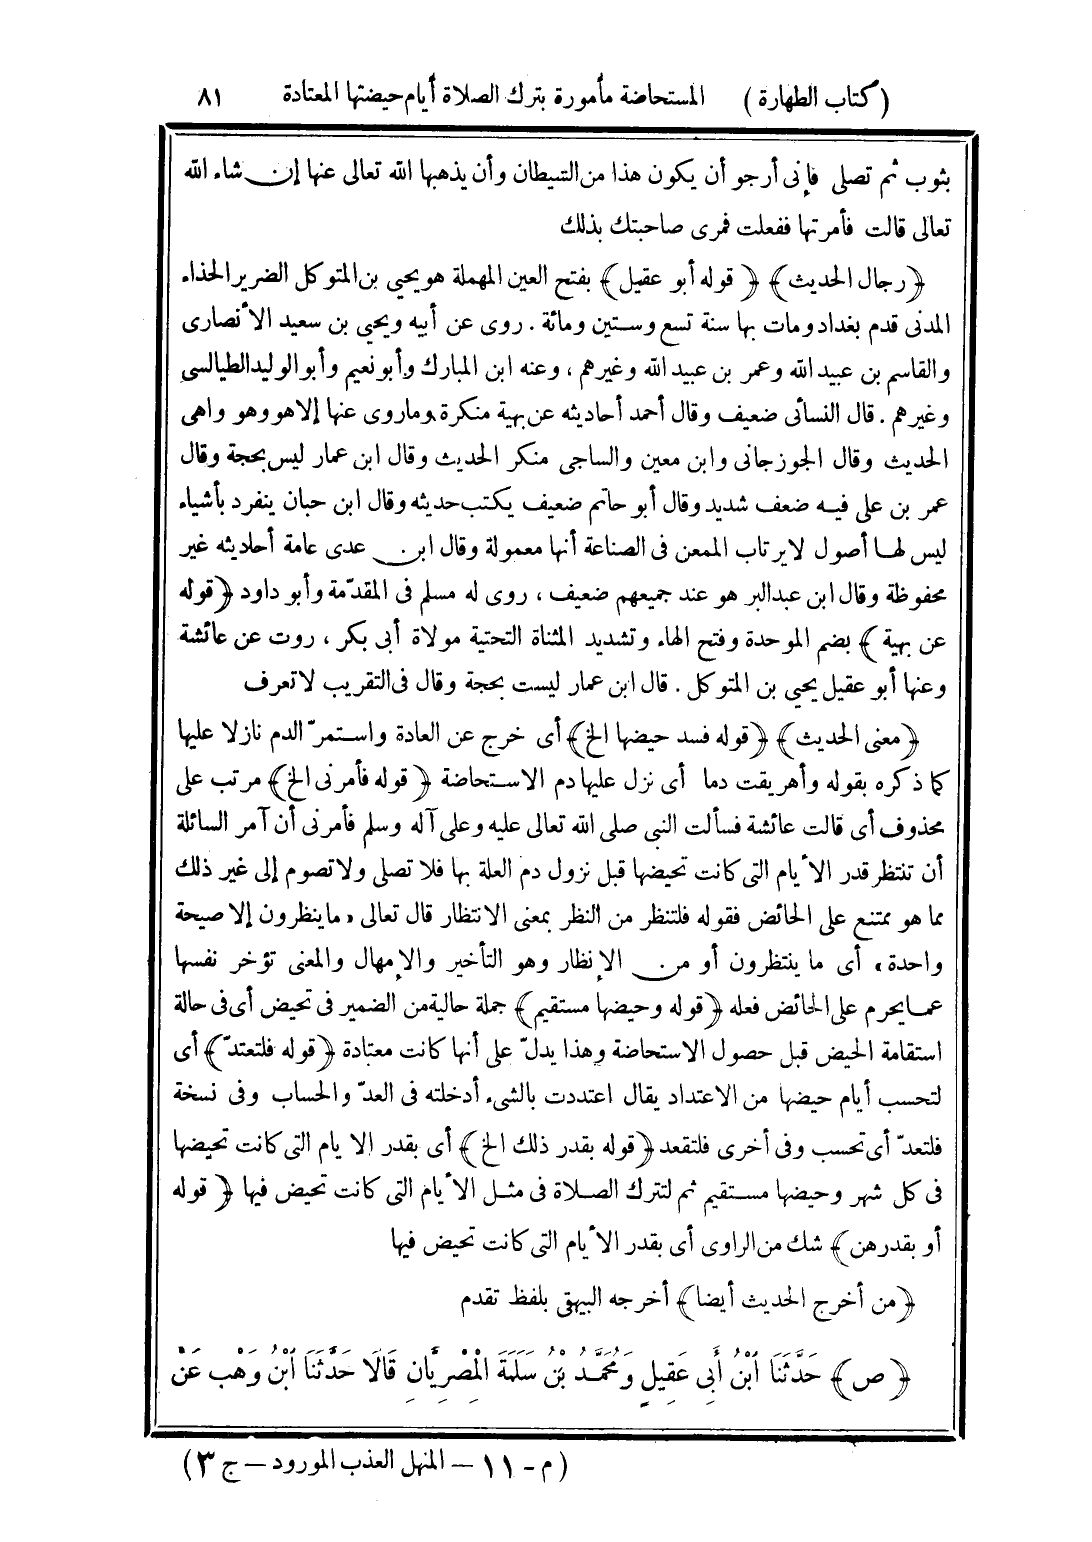 (كتاب الطهارة) المستحاضة مأمورة بترك الصلاة أيام حيضتها المعتادة ٨١
بثوب ثم تصلى فإنى أرجو أن يكون هذا من الشيطان وأن يذهبها الله تعالى عنها إن شاء الله
تعالى قالت فأمرتها ففعلت فمرى صاحبتك بذلك
﴿رجال الحديث﴾ ﴿قوله أبو عقيل﴾ بفتح العين المهملة هو يحيى بن المتوكل الضرير الحذاء
المدنى قدم بغداد ومات بها سنة تسع وستين ومائة. روى عن أبيه ويحيى بن سعيد الأنصارى
والقاسم بن عبيد الله وعمر بن عبيد الله وغيرهم، وعنه ابن المبارك وأبو نعيم وأبو الوليد الطيالسى
وغيرهم. قال النسائى ضعيف وقال أحمد أحاديثه عن بهية منكرة وماروى عنها إلا هو وهو واهى
الحديث وقال الجوزجانى وابن معين والساجى منكر الحديث وقال ابن عمار ليس بحجة وقال
عمر بن على فيه ضعف شديد وقال أبو حاتم ضعيف يكتب حديثه وقال ابن حبان ينفرد بأشياء
ليس لها أصول لا يرتاب الممعن فى الصناعة أنها معمولة وقال ابن عدى عامة أحاديثه غير
محفوظة وقال ابن عبدالبر هو عند جميعهم ضعيف، روى له مسلم فى المقدّمة وأبو داود ﴿قوله
عن بهية﴾ بضم الموحدة وفتح الهاء وتشديد المثناة التحتية مولاة أبى بكر، روت عن عائشة
وعنها أبو عقيل يحيى بن المتوكل. قال ابن عمار ليست بحجة وقال فى التقريب لا تعرف
﴿معنى الحديث﴾ ﴿قوله فسد حيضها الخ﴾ أى خرج عن العادة واستمرّ الدم نازلا عليها
كما ذكره بقوله وأهريقت دما أى نزل عليها دم الاستحاضة ﴿قوله فأمرنى الخ﴾ مرتب على
محذوف أى قالت عائشة فسألت النبى صلى الله تعالى عليه وعلى آله وسلم فأمرنى أن آمر السائلة
أن تنتظر قدر الأيام التى كانت تحيضها قبل نزول دم العلة بها فلا تصلى ولا تصوم إلى غير ذلك
مما هو ممتنع على الحائض فقوله فلتنظر من النظر بمعنى الانتظار قال تعالى «ما ينظرون إلا صيحة
واحدة» أى ما ينتظرون أو من الإنظار وهو التأخير والإمهال والمعنى تؤخر نفسها
عما يحرم على الحائض فعله ﴿قوله وحيضها مستقيم﴾ جملة حالية من الضمير فى تحيض أى فى حالة
استقامة الحيض قبل حصول الاستحاضة وهذا يدلّ على أنها كانت معتادة ﴿قوله فلتعتدّ﴾ أى
لتحسب أيام حيضها من الاعتداد يقال اعتددت بالشىء أدخلته فى العدّ والحساب وفى نسخة
فلتعدّ أى تحسب وفى أخرى فلتقعد ﴿قوله بقدر ذلك الخ﴾ أى بقدر الايام التى كانت تحيضها
فى كل شهر وحيضها مستقيم ثم لتترك الصلاة فى مثل الأيام التى كانت تحيض فيها ﴿قوله
أو بقدرهن﴾ شك من الراوى أى بقدر الأيام التى كانت تحيض فيها
﴿من أخرج الحديث أيضا﴾ أخرجه البيهقى بلفظ تقدم
﴿ص﴾ حَدَّثَنَا ابْنُ أَبِى عَقِيلٍ وَمُحَمَّدُ بْنُ سَلَمَةَ الْمِصْرِيَّانِ قَالَا حَدَّثَنَا ابْنُ وَهْبٍ عَنْ
(م - ١١ - المنهل العذب المورود - ج ٣)